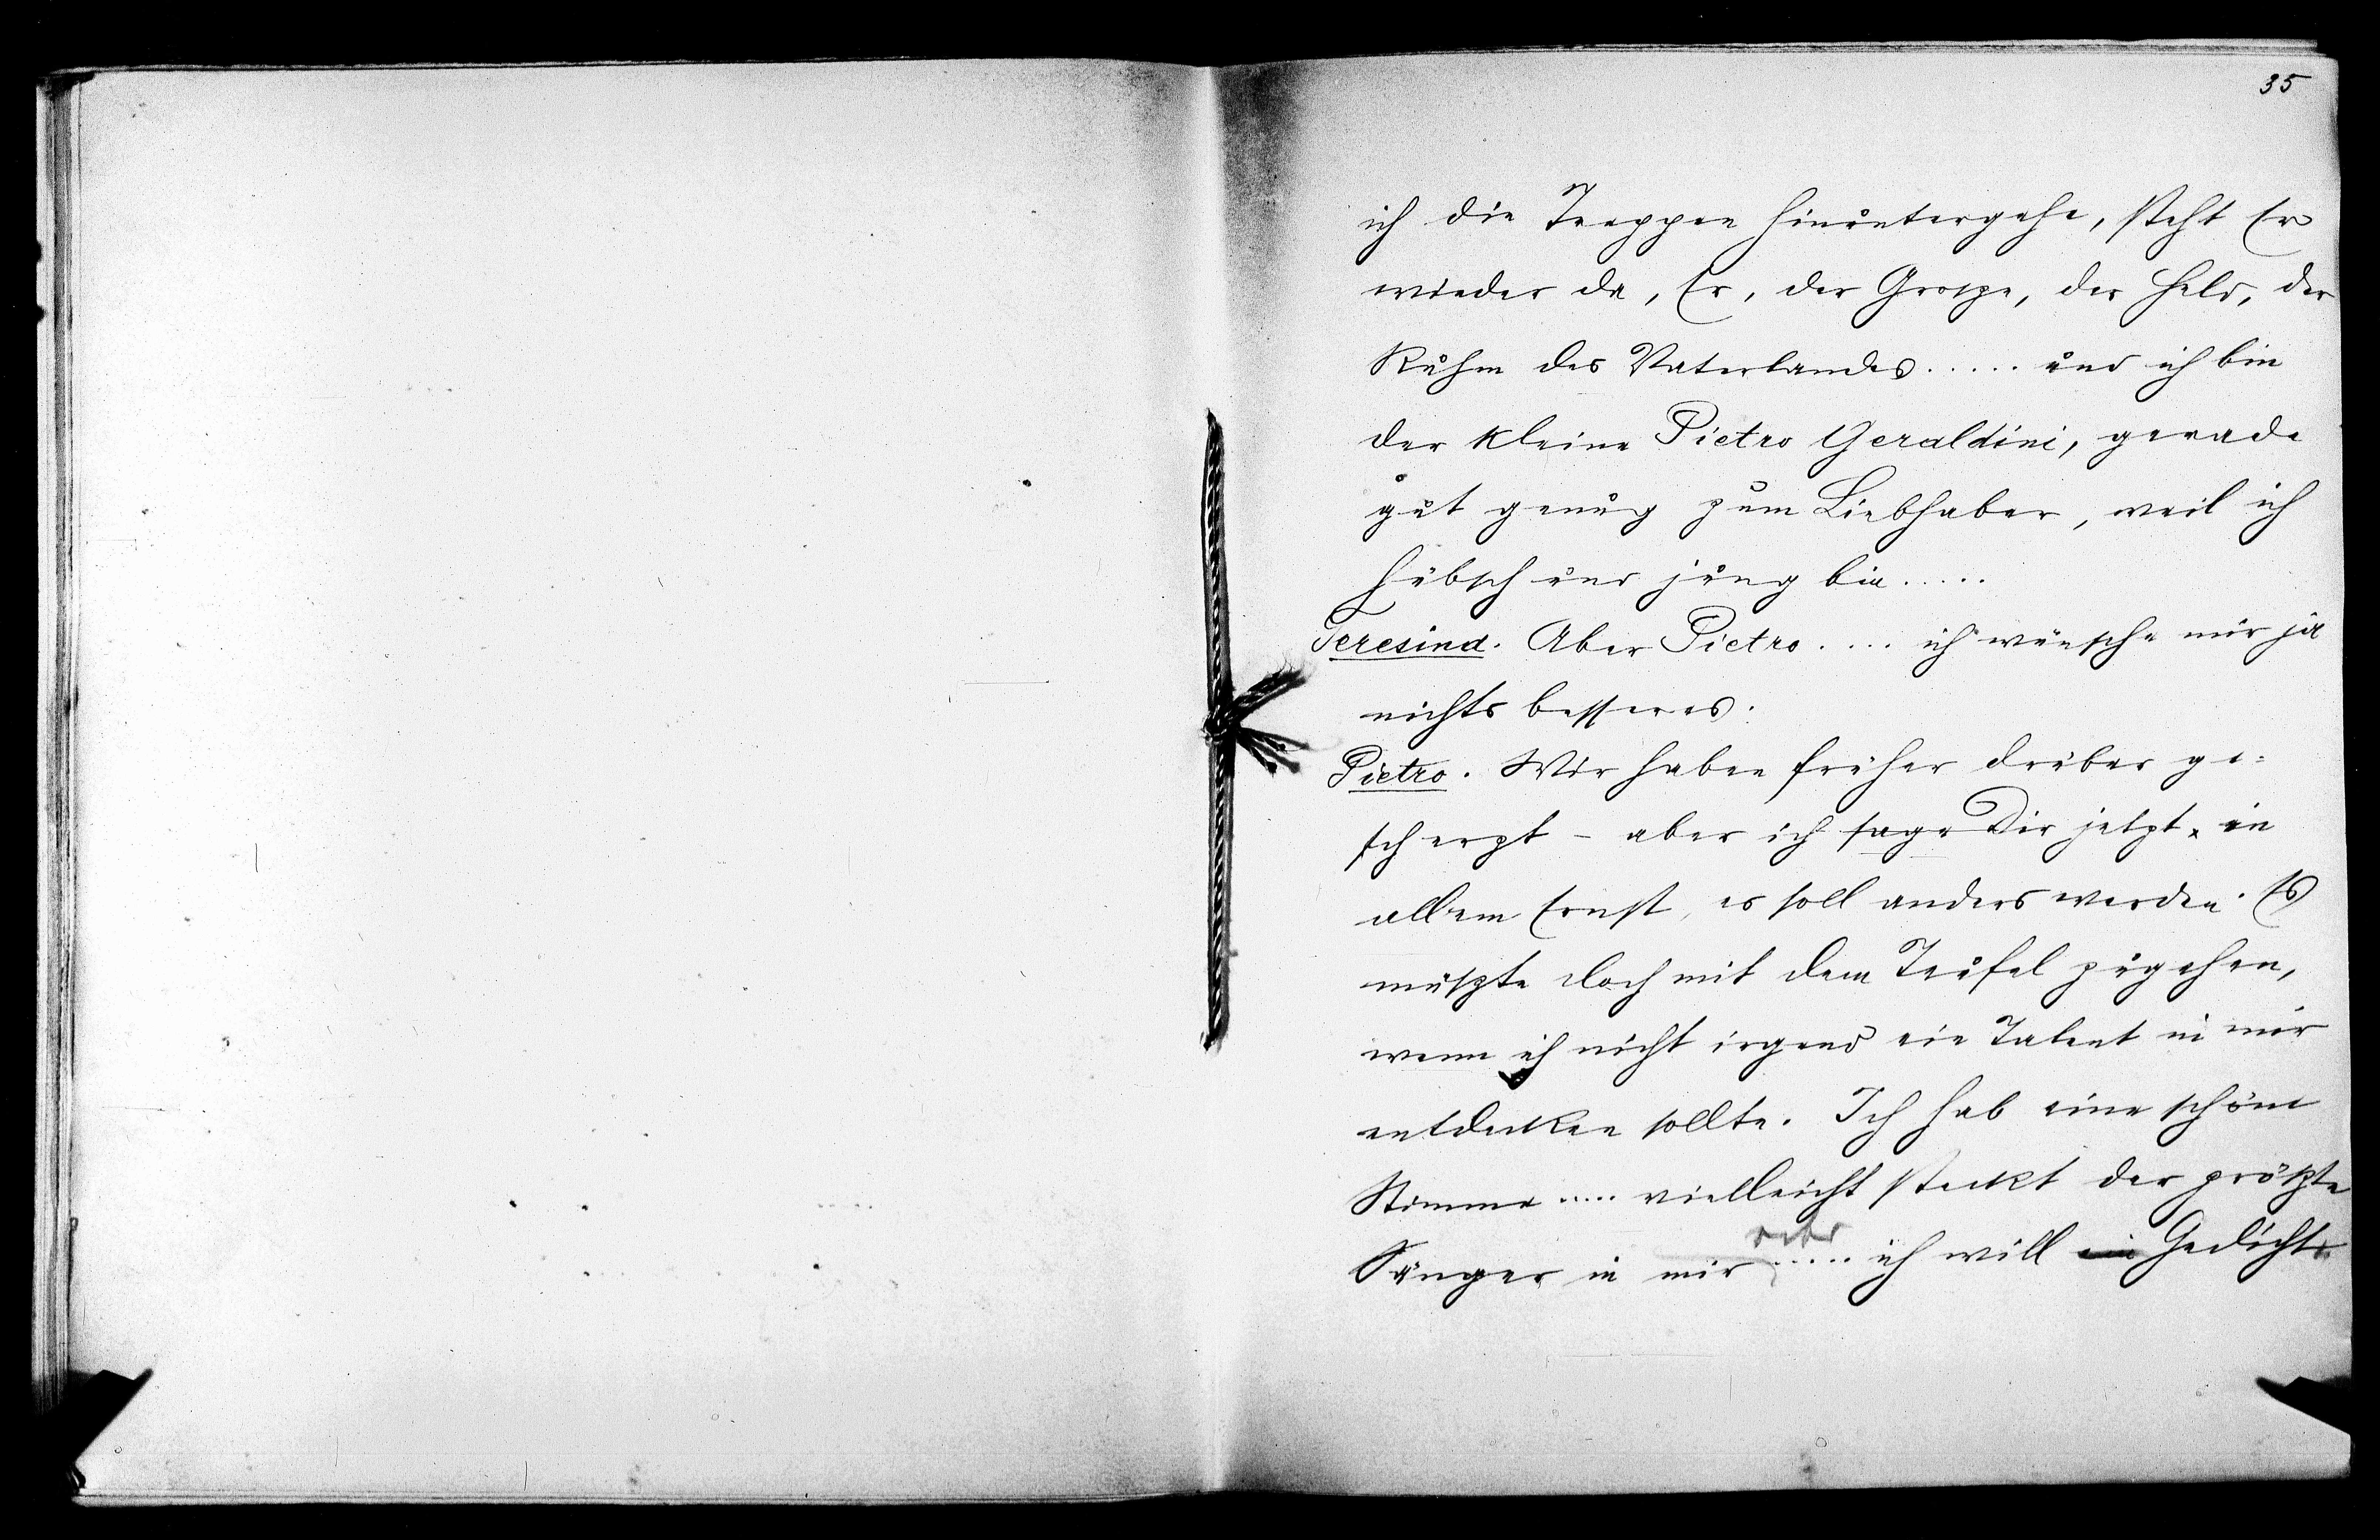 35
ich die Treppen hinuntergehe, steht Er
wieder da, Er, der Grosze, der Held, der
Ruhm des Vaterlandes ..... und ich bin
der kleine Pietro Geraldini, gerade
gut genug zum Liebhaber, weil ich
hübsch und jung bin .....
Teresina. Aber Pietro .... ich wünsche mir ja
nichts besseres.
Pietro. Wir haben früher drüber ge-
scherzt – aber ich sage Dir jetzt in
allem Ernst, es soll anders werden. Es
müszte doch mit dem Teufel zugehen,
wenn ich nicht irgend ein Talent in mir
entdecken sollte. Ich hab eine schöne
Stimme ..... vielleicht steckt der gröszte
oder
Sänger in mir ..... ich will ein Gedicht